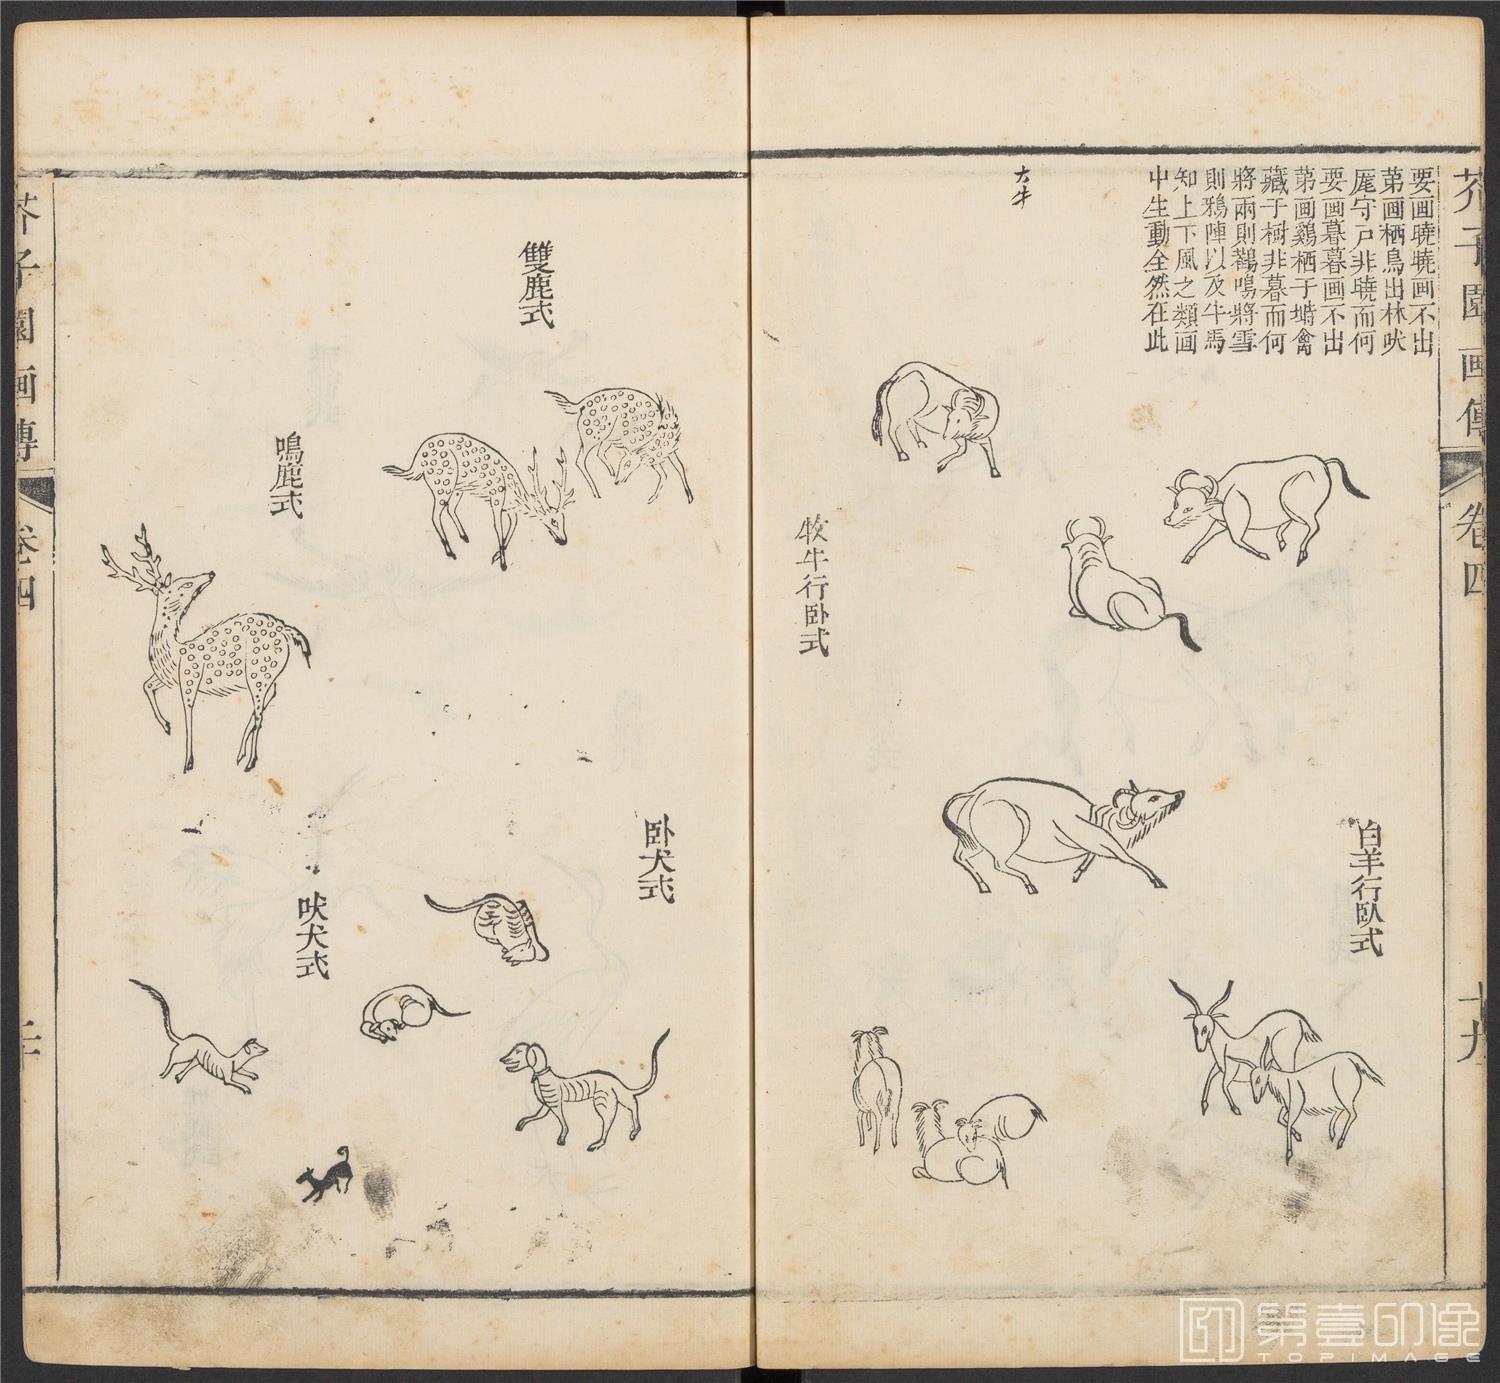 芥子園画傳
卷四
十九
要画曉曉画不出
苐画栖鳥出林吠
厖守戸非曉而何
要画暮暮画不出
苐画鷄栖于塒禽
藏于樹非暮而何
將雨則鸛鳴將雪
則鴉陣以及牛馬
知上下風之類画
中生動全然在此
大牛
牧牛行卧式
白羊行臥式
雙鹿式
鳴鹿式
卧犬式
吠犬式
芥子園画傳
卷四
第壹印像
TOPIMAGE